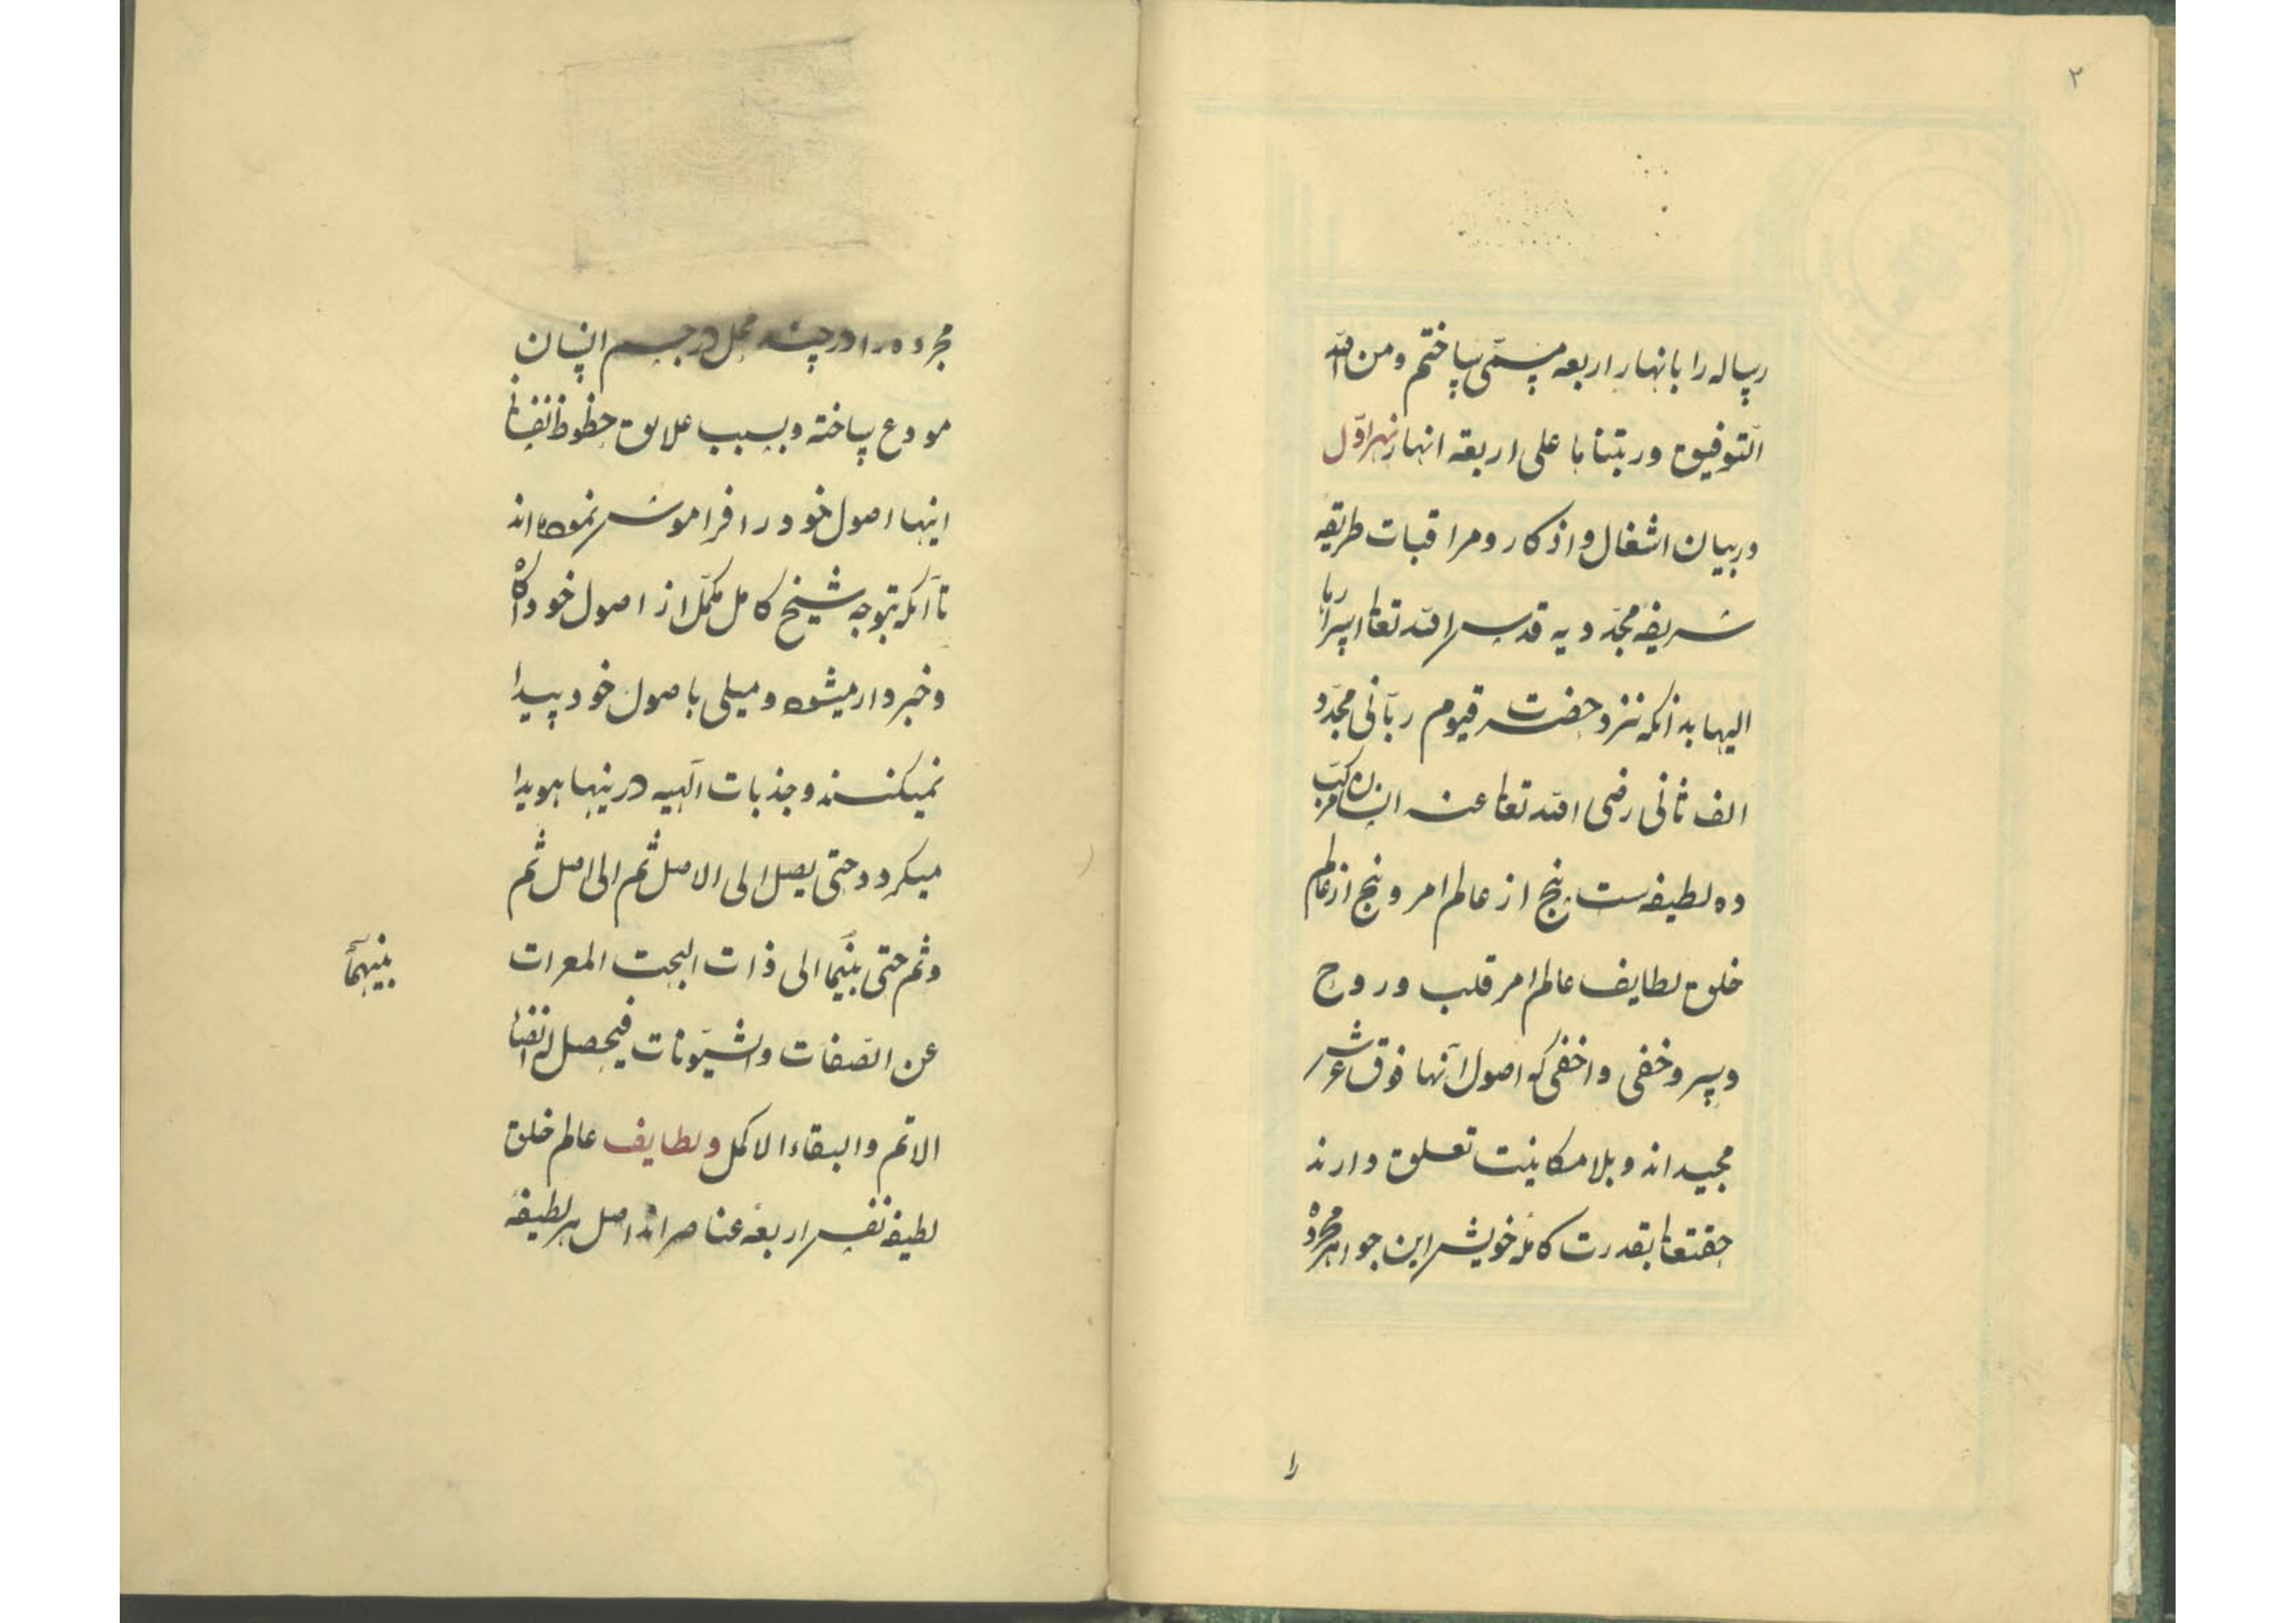 ۲
رساله را بانهار اربعه مسمّی ساختم ومن الله
التّوفیق ورتبنا با علی اربعة انهار نهر اوّل
در بیان اشغال و اذکار و مراقبات طریقه
شریفه مجدّدیه قدس الله تعالی اسرارها
الیها بدانکه نزد حضرت قیوم ربّانی مجدّد
الف ثانی رضی الله تعالی عنه انسان مرکّب
ده لطیفه ست پنج از عالم امر و پنج از عالم
خلق لطایف عالم امر قلب و روح
و سر و خفی و اخفی که اصول آنها فوق عرش
مجید اند و بلامکانیت تعلق دارند
حقتعالی بقدرت کامله خویش این جواهر مجرده
را
مجرده را در چند محل در جسم انسان
مودع ساخته و بسبب علایق حظوظ نفسانی
اینها اصول خود را فراموش نموده اند
تا آنکه بتوجه شیخ کامل مکمّل از اصول خود آگاه
و خبردار میشوند و میلی باصول خود پیدا
نمیکنند و جذبات آلهیه درینها هویدا
میکردد حتی یصل الی الاصل ثم الی اصل ثم
وثم حتی بینما الی ذات البحت المعرات
عن الصّفات والشیّونات فیحصل له الفناء
الاتم والبقاء الاکمل و لطایف عالم خلق
لطیفه نفس و اربعهٔ عناصر اند اصل هر لطیفهٔ
بینهما